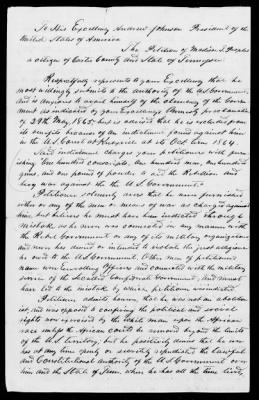 To His Excellency Andrew Johnson President of the
United States of America
The Petition of Madison T. Peoples
a citizen of Carter County and State of Tennessee
Respectfully represents to your Excellency that he
most willingly submits to the authority of the U.S. Government,
and is anxious to avail himself of the clemency of the Govern
ment as indicated by your Excellency's Amnesty proclamation
of 29th May 1865, but is advised that he is excluded from
its benefits because of an indictment found against him
in the U.S. Court at Knoxville at its Oct term 1864
Said indictment charges your petitioner with fur
nishing One hundred conscripts, One hundred men, one hundred
guns, and one pound of powder to aid the Rebellion and
levy war against the U.S. Government.
Petitioner solemnly avers that he never furnished
either or any of the men or means of war as charged against
him, but believes he must have been indicted through
mistake, as he never was connected in any manner with
the Rebel Government or any of its military organizations
and never has denied or intended to violate the just allegiance
he owed to the U.S. Government. Other men of petitioner's
name were enrolling Officers and connected with the military
service of the Confederate Government, and must
have led to the mistake by which petitioner was indicted
Petitioner admits however, that he was not an abolition
ist, and was opposed to conferring the political and social
rights now enjoyed by the white man upon the African
race unless the African could be removed beyond the limits
of the U.S. territory, but he positively denies that he ever
has at any time openly or secretly repudiated the lawful
and Constitutional authority of the U.S. Government over
him and the State of Tenn. where he has all the time lived